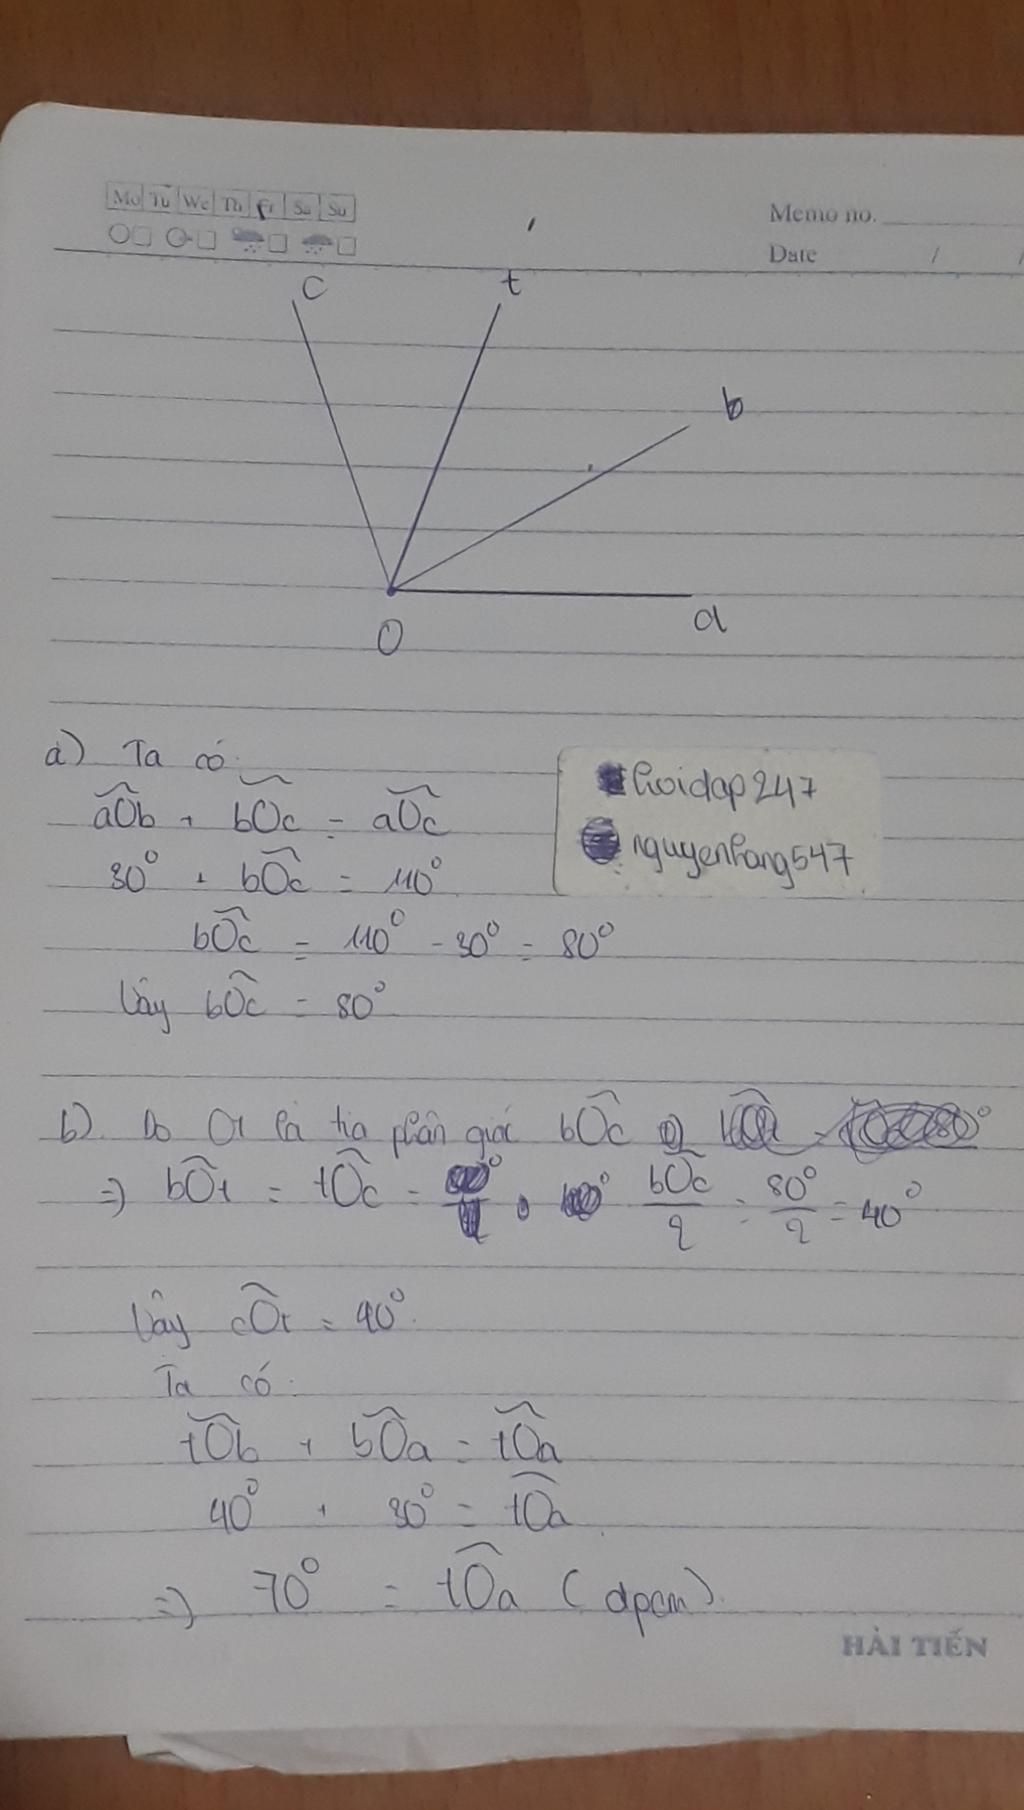 Mo Tu We Th Fr Sa Su
Memo no.
Date / /
c t
b
a
O
a) Ta có:
aOb + bOc = aOc
30° + bOc = 110°
bOc = 110° - 30° = 80°
Vậy bOc = 80°
hoidap247
nguyenhang547
b) Do Ot là tia phân giác bOc
=> bOt = tOc = bOc/2 = 80°/2 = 40°
Vậy cOt = 40°.
Ta có:
tOb + bOa = tOa
40° + 30° = tOa
=> 70° = tOa (dpcm).
HẢI TIẾN